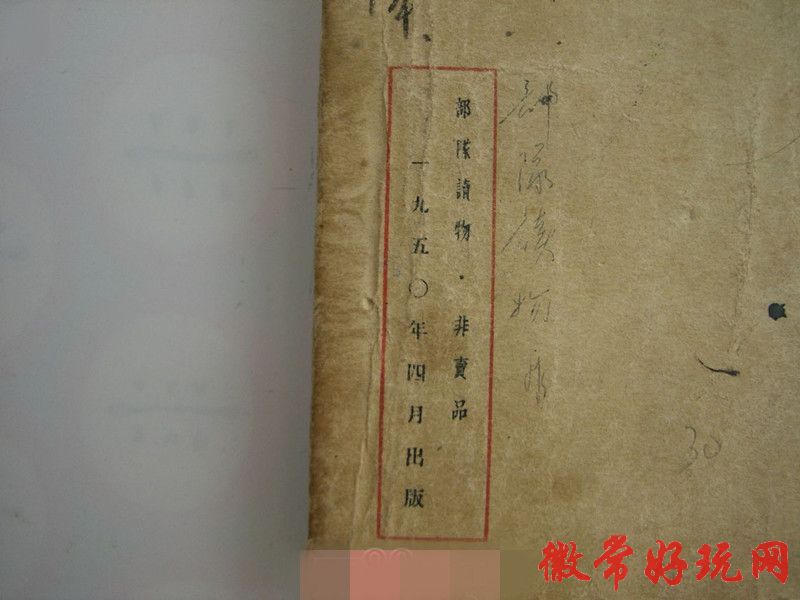 部隊讀物·非賣品
一九五〇年四月出版
部隊讀物
30
徽常好玩网